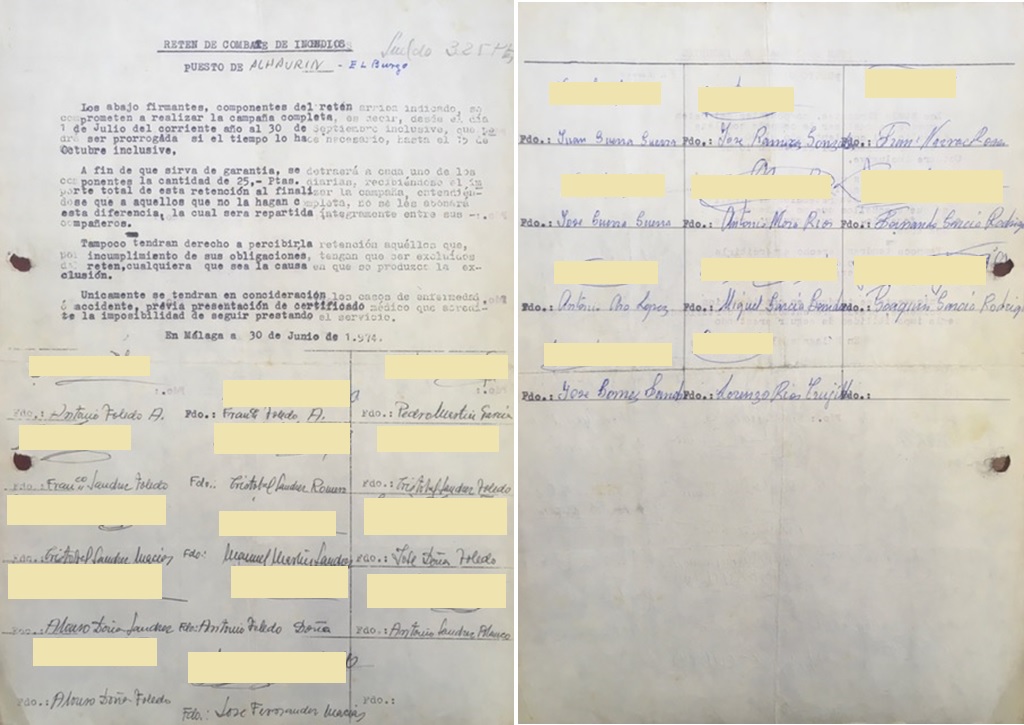 RETEN DE COMBATE DE INCENDIOS
Sueldo 325 Pts
PUESTO DE ALHAURIN - EL Burgo
Los abajo firmantes, componentes del retén arriba indicado, se
comprometen a realizar la campaña completa, es decir, desde el día
1 de Julio del corriente año al 30 de Septiembre inclusive, que
ser prorrogada si el tiempo lo hace necesario, hasta el 15 de
Octubre inclusive.
A fin de que sirva de garantía, se detraerá a cada uno de los
componentes la cantidad de 25,- Ptas. diarias, recibiéndose el im
porte total de esta retención al finalizar la campaña, entendién-
dose que a aquellos que no la hagan completa, no se les abonará
esta diferencia, la cual sera repartida íntegramente entre sus
compañeros.
Tampoco tendran derecho a percibirla retención aquéllos que,
por incumplimiento de sus obligaciones, tengan que ser excluidos
del reten,cualquiera que sea la causa en que se produzca la ex-
clusión.
Unicamente se tendran en concideración los casos de enfermedad
o accidente, prévia presentación de certificado médico que acredi-
te la imposibilidad de seguir prestando el servicio.
En Málaga a 30 de Junio de 1.974.
Fdo.: Antonio Toledo A. Fdo.: Franco Toledo A. Fdo.: Pedro Martin Garcia
Fdo.: Franco Sanchez Toledo Fdo.: Cristobal Sanchez Romero Fdo.: Cristobal Sanchez Toledo
Fdo.: Cristobal Sanchez Macias Fdo: Manuel Martin Sanchez Fdo.: Jose Doña Toledo
Fdo.: Alonso Doña Sanchez Fdo: Antonio Toledo Doña Fdo.: Antonio Sanchez Polanco
Fdo.: Alonso Doña Toledo Fdo.: Jose Fernandez Macias Fdo.:
Fdo.: Juan Guerra Guerra Fdo.: Jose Ramirez Fdo.: Fran
Fdo.: Jose Guerra Guerra Fdo.: Antonio Mora Rios Fdo.: Fernando Garcia Rodrig
Fdo.: Antonio Oro Lopez Fdo.: Miguel Garcia Fdo.: Joaquin Garcia Rodrig
Fdo.: Jose Gomez Fdo.: Lorenzo Rios Trujillo Fdo.: